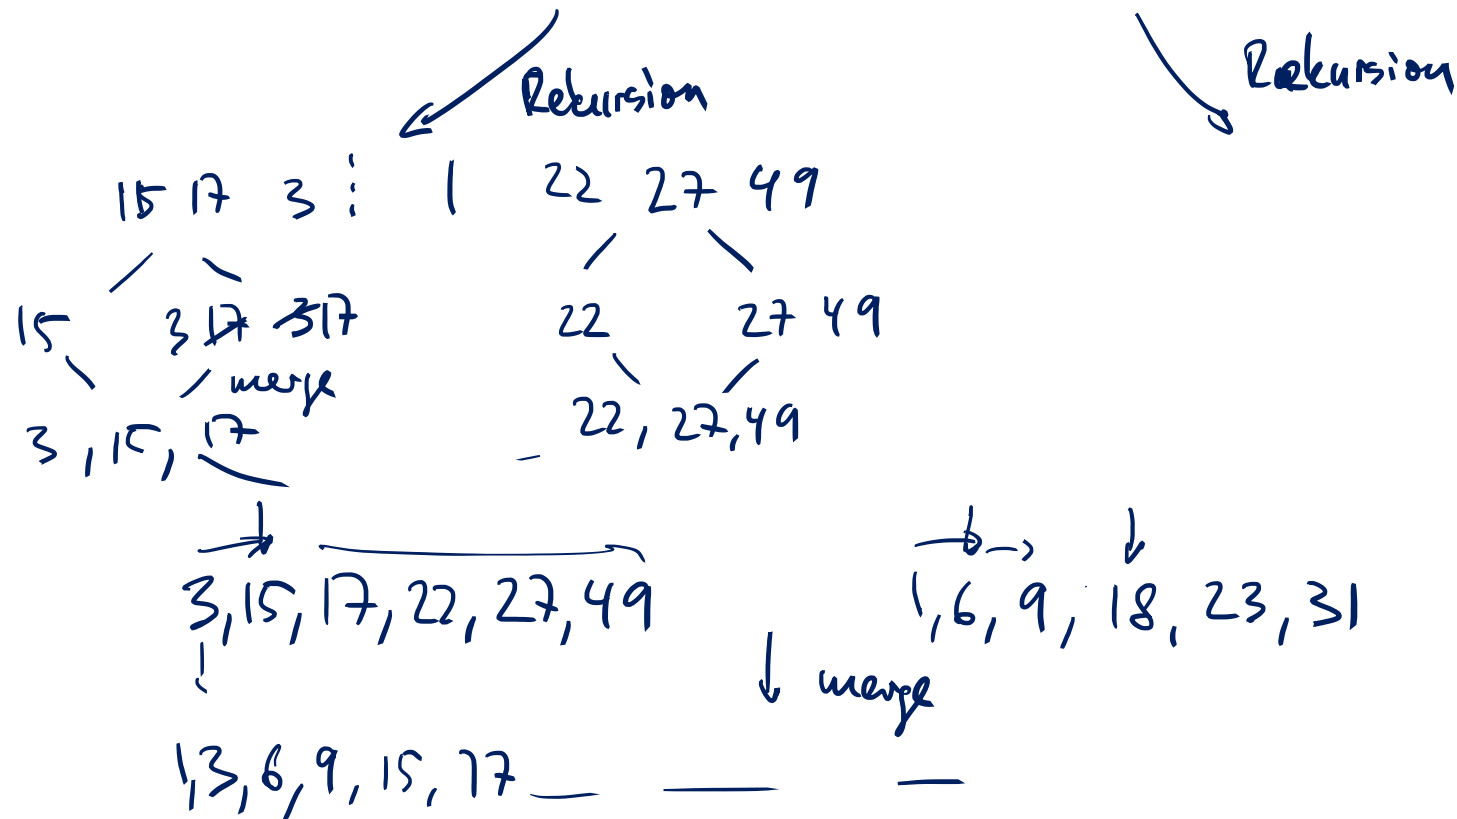 Rekursion Rekursion
15 17 3 | 22 27 49
15 3 17 3 17 22 27 49
merge
3, 15, 17 22, 27, 49
3, 15, 17, 22, 27, 49 1, 6, 9, 18, 23, 31
merge
1, 3, 6, 9, 15, 17